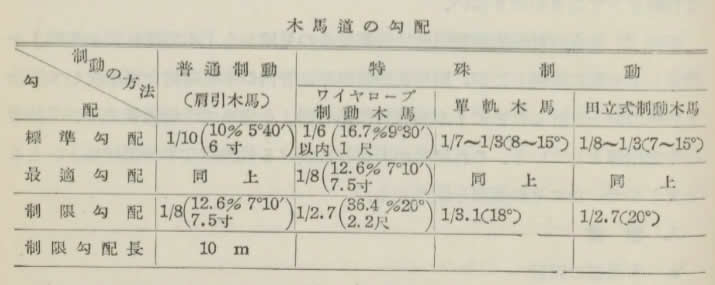 木馬道の勾配
制動の方法
勾配
普通制動
(肩引木馬)
特殊制動
ワイヤロープ
制動木馬
單軌木馬
田立式制動木馬
標準勾配
1/10(10% 5°40′
6寸
1/6
以内(16.7%9°30′
1尺
1/7~1/3(8~15°)
1/8~1/3(7~15°)
最適勾配
同上
1/8(12.6% 7°10′
7.5寸
同上
同上
制限勾配
1/8(12.6% 7°10′
7.5寸)
1/2.7(36.4%20°
2.2尺)
1/3.1(18°)
1/2.7(20°)
制限勾配長
10 m